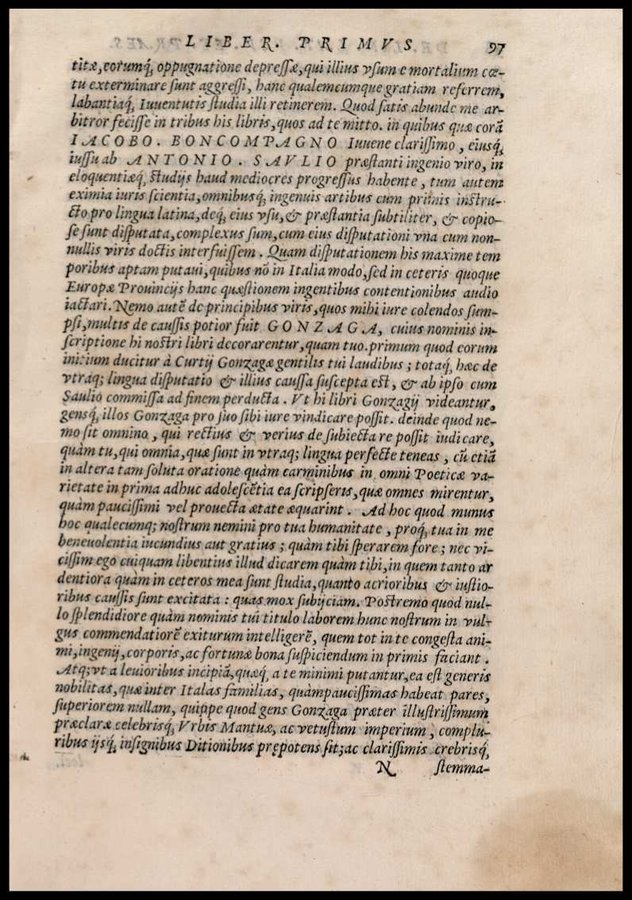 LIBER. PRIMVS. 97
titæ, eorumq́, oppugnatione depressæ, qui illius vsum e mortalium cœ-
tu exterminare sunt aggressi, hanc qualemcumque gratiam referrem,
labantiaq́, Iuuentutis studia illi retinerem. Quod satis abunde me ar-
bitror fecisse in tribus his libris, quos ad te mitto. in quibus quæ corã
IACOBO. BONCOMPAGNO Iuuene clarissimo, eiusq́,
iussu ab ANTONIO. SAVLIO præstanti ingenio viro, in
eloquentiæq́, studijs haud mediocres progressus habente, tum autem
eximia iuris scientia, omnibusq́, ingenuis artibus cum primis instru-
cto pro lingua latina, deq́, eius vsu, & præstantia subtiliter, & copio-
se sunt disputata, complexus sum, cum eius disputationi vna cum non-
nullis viris doctis interfuissem. Quam disputationem his maxime tem
poribus aptam putaui, quibus nõ in Italia modo, sed in ceteris quoque
Europæ Prouincijs hanc quæstionem ingentibus contentionibus audio
iactari. Nemo autẽ de principibus viris, quos mihi iure colendos sum-
psi, multis de caussis potior fuit GONZAGA, cuius nominis in-
scriptione hi nostri libri decorarentur, quam tuo. primum quod eorum
initium ducitur à Curtij Gonzagæ gentilis tui laudibus; totaq́, hæc de
vtraq; lingua disputatio & illius caussa suscepta est, & ab ipso cum
Saulio commissa ad finem perducta. Vt hi libri Gonzagij videantur,
gensq́, illos Gonzaga pro suo sibi iure vindicare possit. deinde quod ne-
mo sit omnino, qui rectius & verius de subiecta re possit iudicare,
quàm tu, qui omnia, quæ sunt in vtraq; lingua perfecte teneas, cũ etiã
in altera tam soluta oratione quàm carminibus in omni Poeticæ va-
rietate in prima adhuc adolescẽtia ea scripseris, quæ omnes mirentur,
quàm paucissimi vel prouecta ætate æquarint. Ad hoc quod munus
hoc qualecumq; nostrum nemini pro tua humanitate, proq́, tua in me
beneuolentia iucundius aut gratius; quàm tibi sperarem fore; nec vi-
cissim ego cuiquam libentius illud dicarem quàm tibi, in quem tanto ar
dentiora quàm in ceteros mea sunt studia, quanto acrioribus & iustio-
ribus caussis sunt excitata: quas mox subijciam. Postremo quod nul-
lo splendidiore quàm nominis tui titulo laborem hunc nostrum in vul-
gus commendatiorẽ exiturum intelligerẽ, quem tot in te congesta ani-
mi, ingenij, corporis, ac fortunæ bona suspiciendum in primis faciant.
Atq; vt a leuioribus incipiã, quæq́, a te minimi putantur, ea est generis
nobilitas, quæ inter Italas familias, quàmpaucissimas habeat pares,
superiorem nullam, quippe quod gens Gonzaga præter illustrissimum
præclaræ celebrisq́, Vrbis Mantuæ, ac vetustum imperium, complu-
ribus ijsq́, insignibus Ditionibus prępotens sit; ac clarissimis crebrisq́,
N stemma-